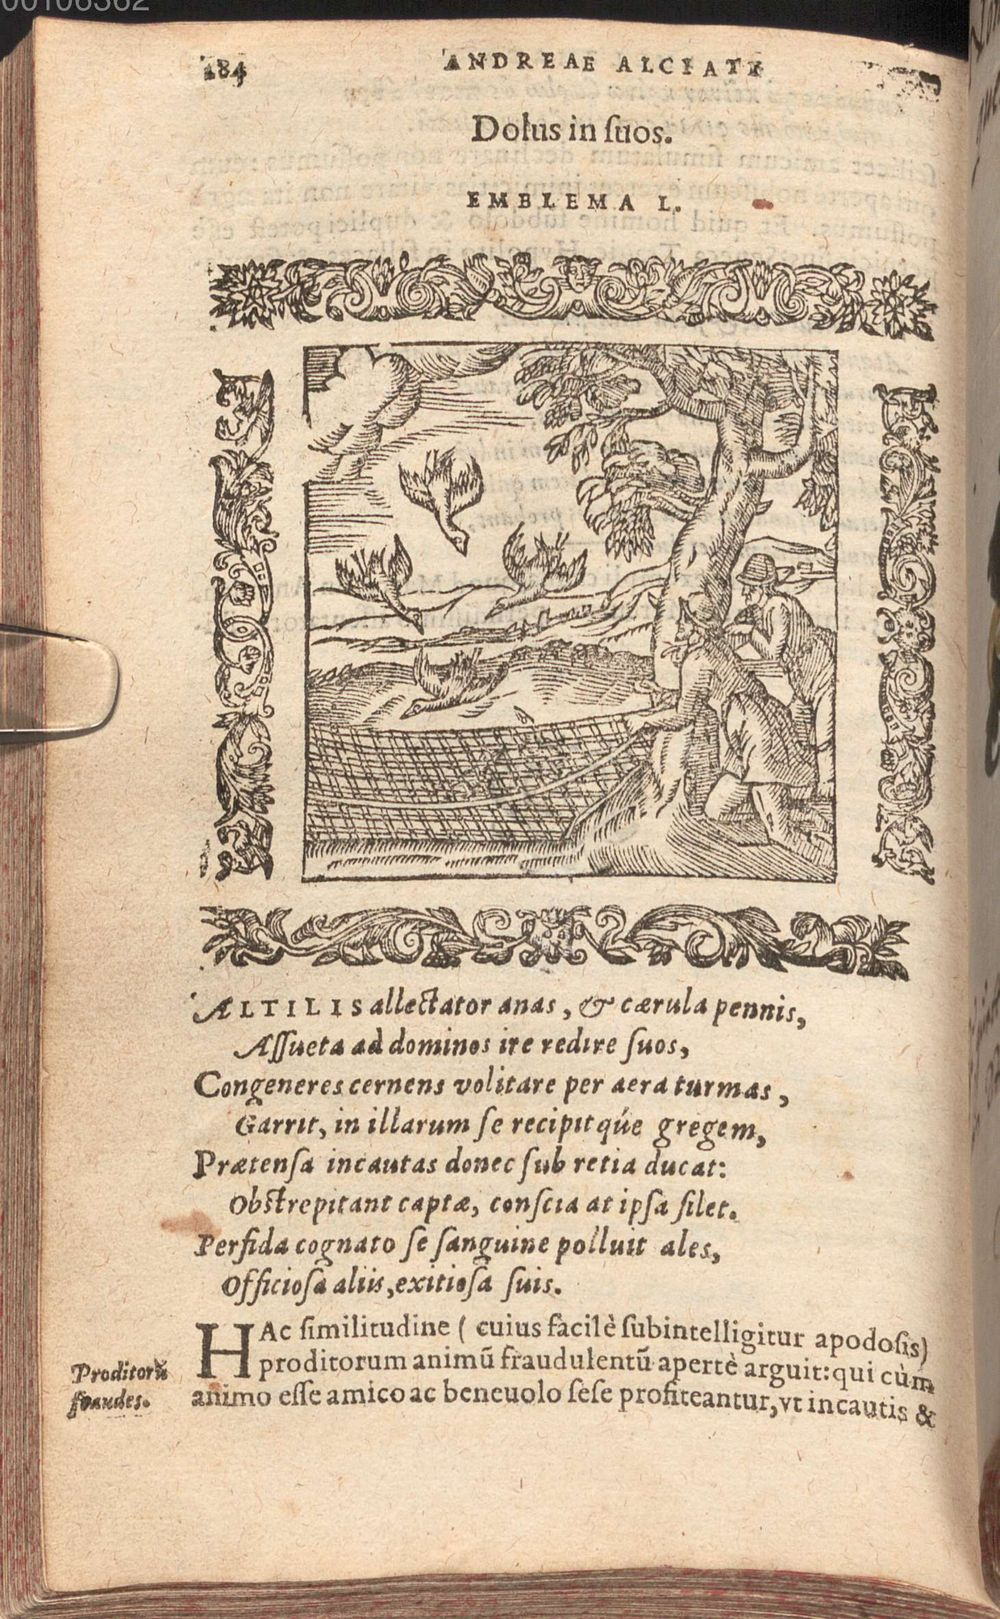 00106362
184 ANDREAE ALCIATI
Dolus in ſuos.
EMBLEMA L.
ALTILIS allectator anas, & cærula pennis,
Aſſueta ad dominos ire redire ſuos,
Congeneres cernens volitare per aera turmas,
Garrit, in illarum ſe recipit qúe gregem,
Prætenſa incautas donec ſub retia ducat:
Obſtrepitant captæ, conſcia at ipſa ſilet.
Perfida cognato ſe ſanguine polluit ales,
Officioſa aliis, exitioſa ſuis.
HAc ſimilitudine (cuius facilè ſubintelligitur apodoſis)
Proditorũ proditorum animũ fraudulentũ apertè arguit: qui cùm
fraudes. animo eſſe amico ac beneuolo ſeſe profiteantur, vt incautis &